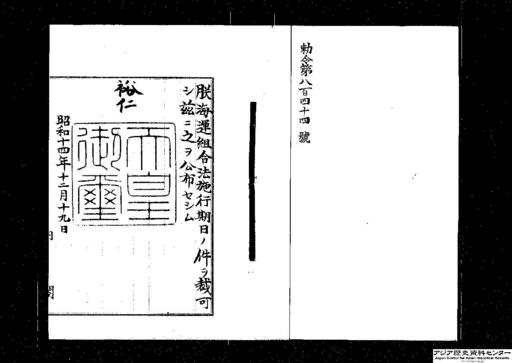 勅令第八百四十四號
朕海運組合法施行期日ノ件ヲ裁可
シ茲ニ之ヲ公布セシム
裕仁
天皇御璽
昭和十四年十二月十九日
内
閣
アジア歴史資料センター
Japan Center for Asian Historical Records